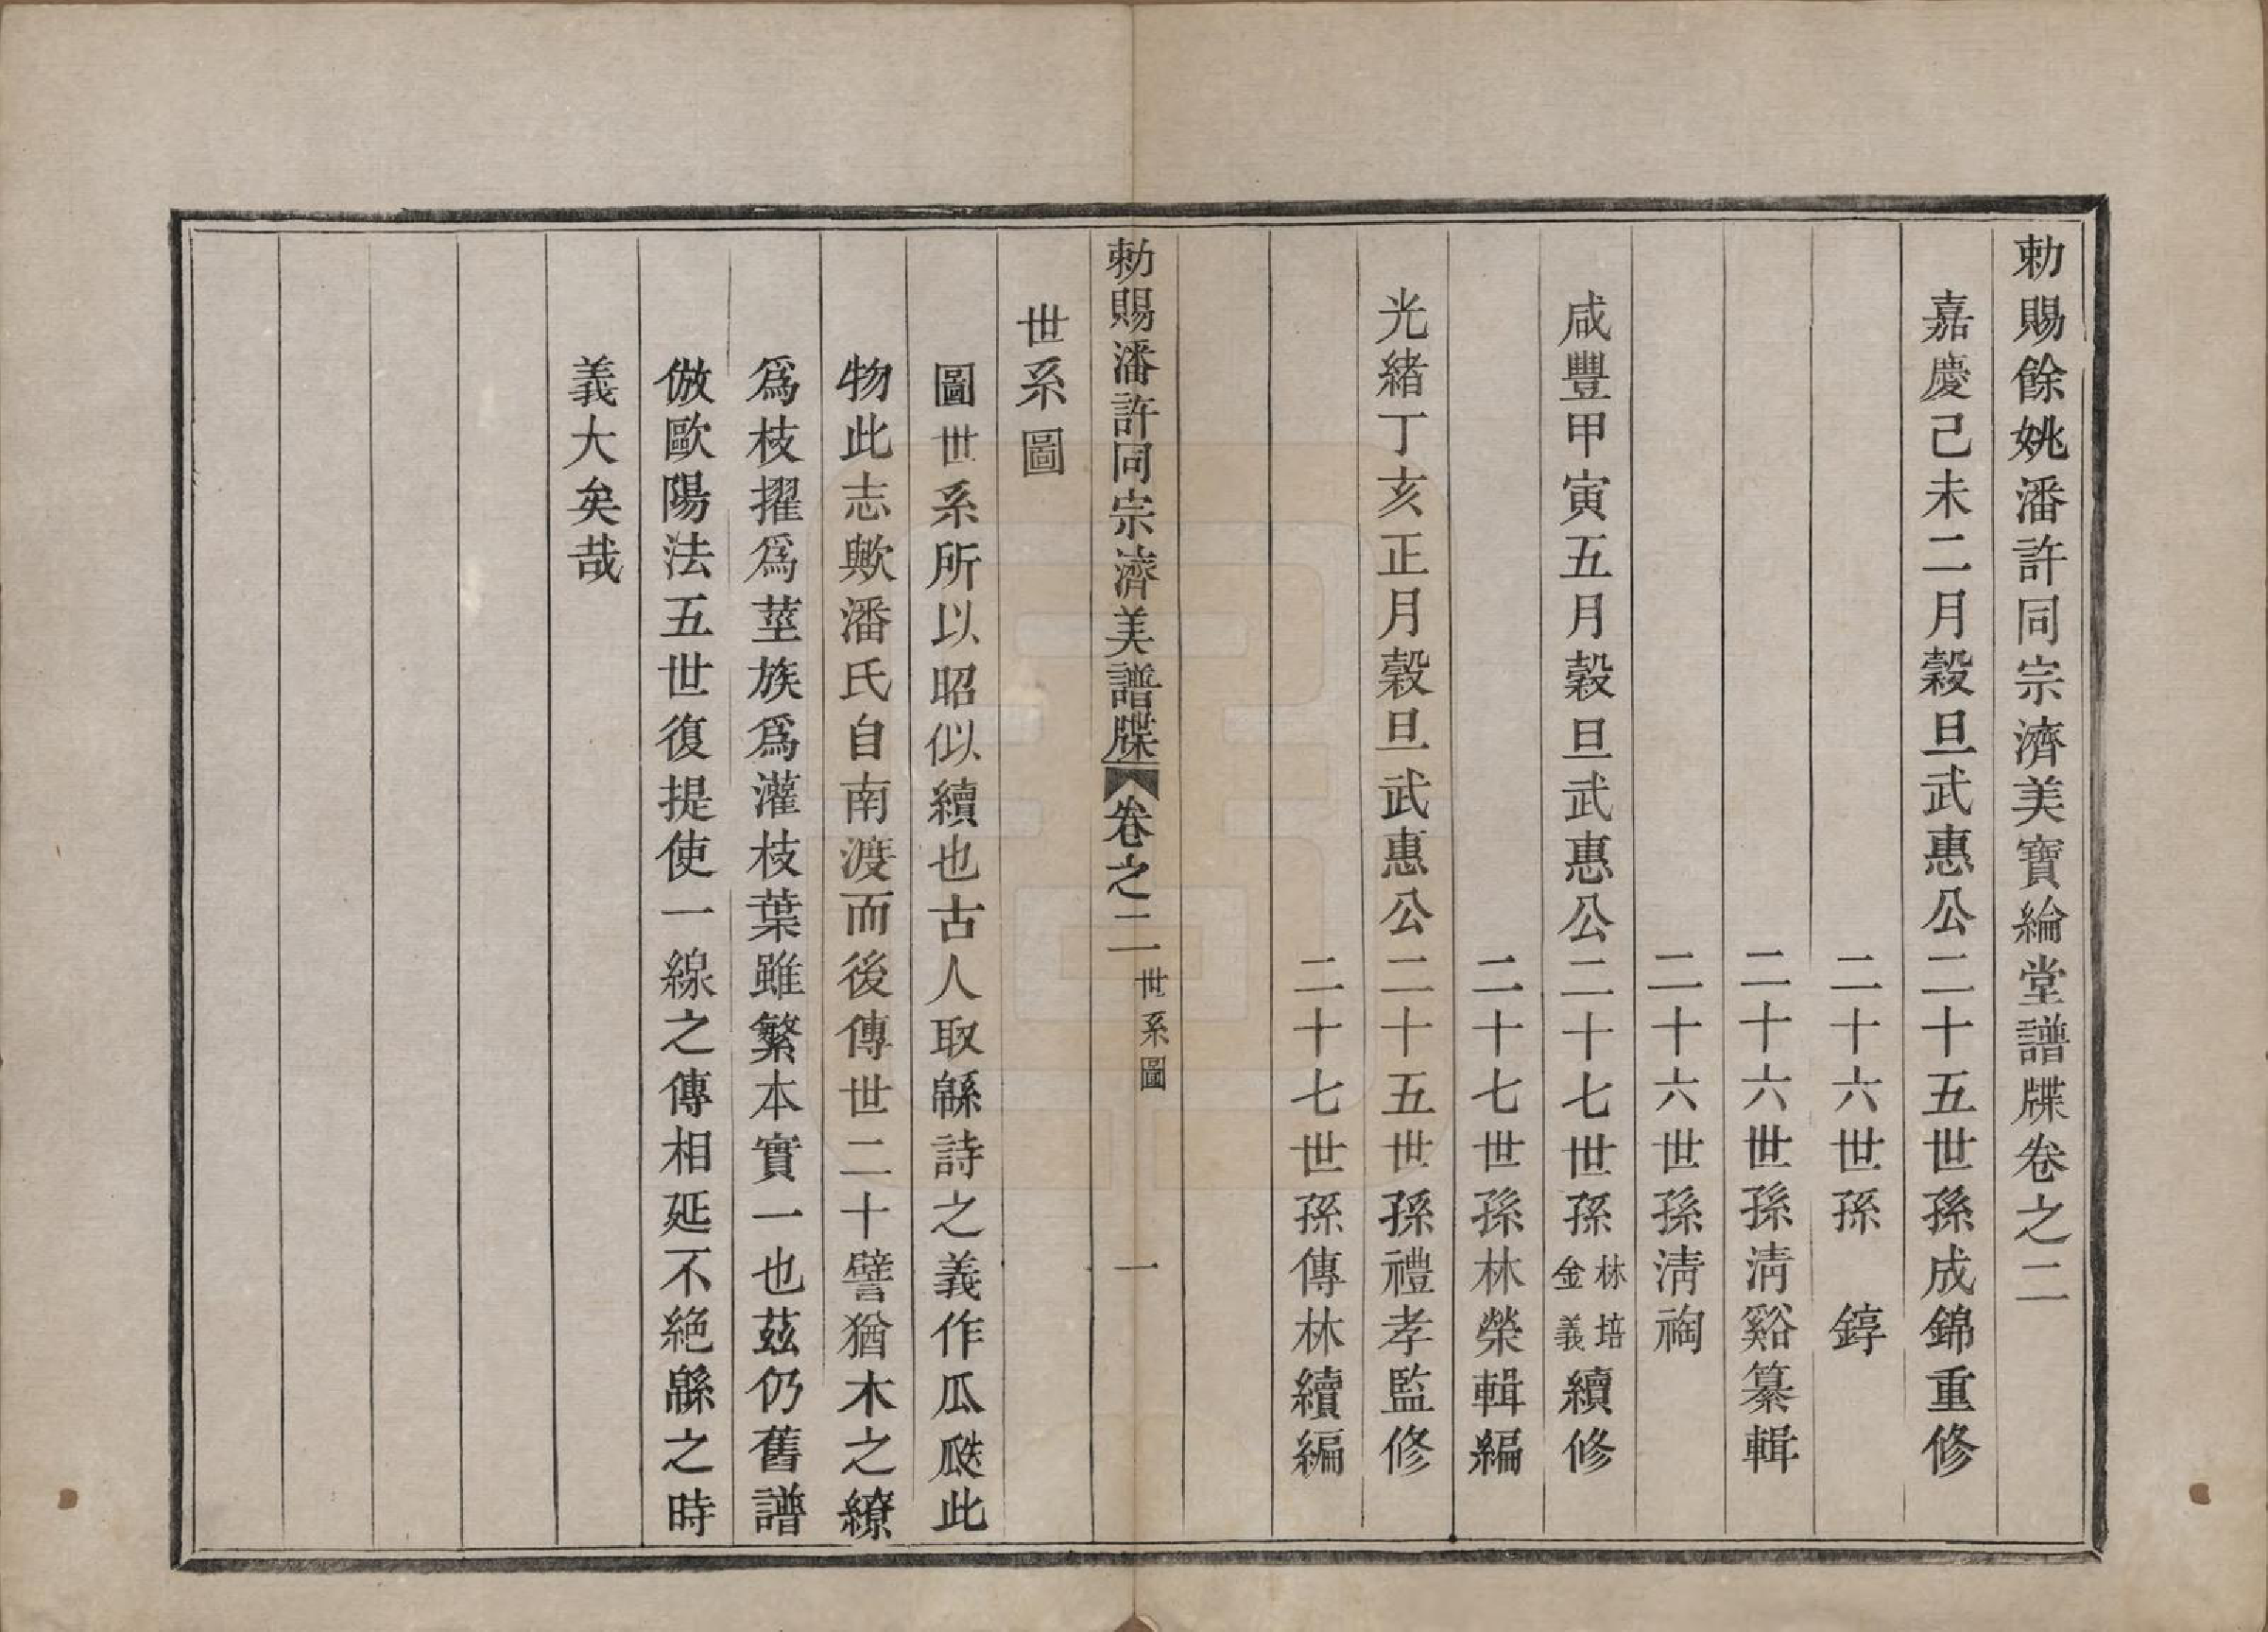 勅賜餘姚潘許同宗濟美寶綸堂譜牒卷之二
嘉慶己未二月穀旦武惠公二十五世孫成錦重修
二十六世孫　錞
二十六世孫淸谿纂輯
二十六世孫淸裪
咸豐甲寅五月穀旦武惠公二十七世孫林培金義續修
二十七世孫林榮輯編
光緖丁亥正月穀旦武惠公二十五世孫禮孝監修
二十七世孫傳林續編
勅賜潘許同宗濟美譜牒 卷之二 世系圖 一
世系圖
圖世系所以昭似續也古人取緜詩之義作瓜瓞此
物此志歟潘氏自南渡而後傳世二十譬猶木之繚
爲枝擢爲莖族爲灌枝葉雖繁本實一也茲仍舊譜
倣歐陽法五世復提使一線之傳相延不絕緜之時
義大矣哉